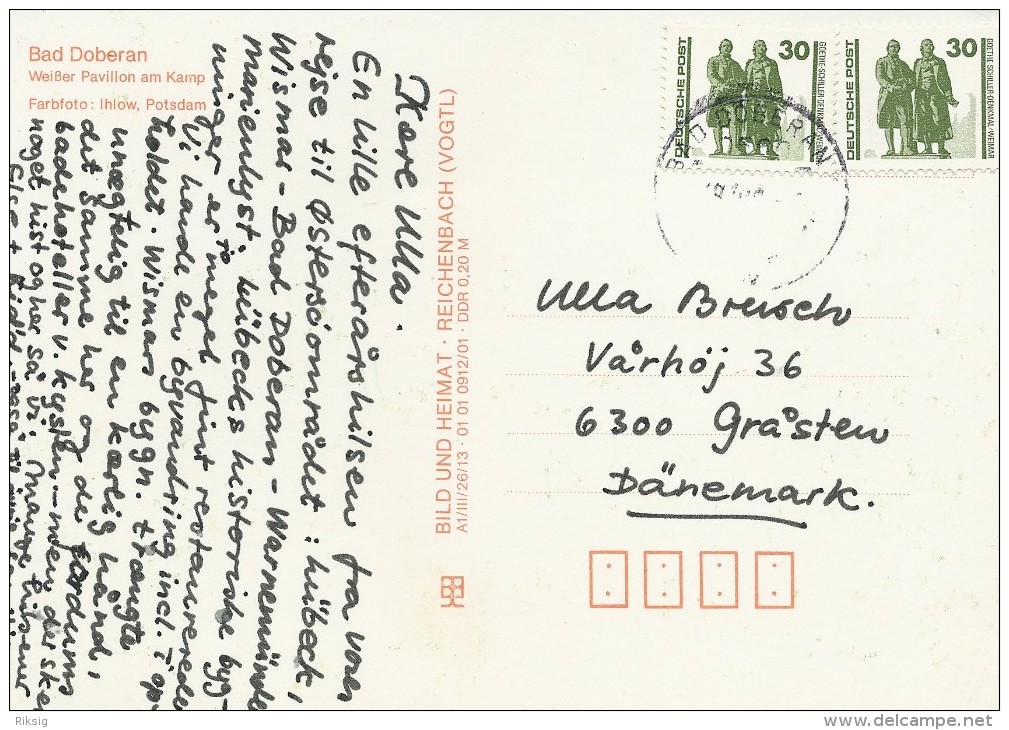 Bad Doberan
Weißer Pavillon am Kamp
Farbfoto: Ihlow, Potsdam
Kære Ulla.
En lille efterårshilsen fra vores
rejse til Østersöområdet: Lübeck,
Wismar - Bad Doberan - Warnemünde
Marienlyst. Lübecks historiske byg-
ninger er meget fint restaurerede
Vi havde en byvandring incl. i op-
holdet. Wismars bygn. trængte
unægtelig til en kærlig hånd,
det samme her og de fordums
badehoteller v. kysten - men der ske
noget hist og her så vi. Mange hilsener
Else +
BILD UND HEIMAT · REICHENBACH (VOGTL)
A1/III/26/13 · 01 01 0912/01 · DDR 0,20 M
DEUTSCHE POST
30
GOETHE-SCHILLER-DENKMAL/WEIMAR
DEUTSCHE POST
30
GOETHE-SCHILLER-DENKMAL/WEIMAR
BAD DOBERAN
Ulla Breusch
Vårhöj 36
6300 Gråsten
Dänemark.
Riksig
www.delcampe.net